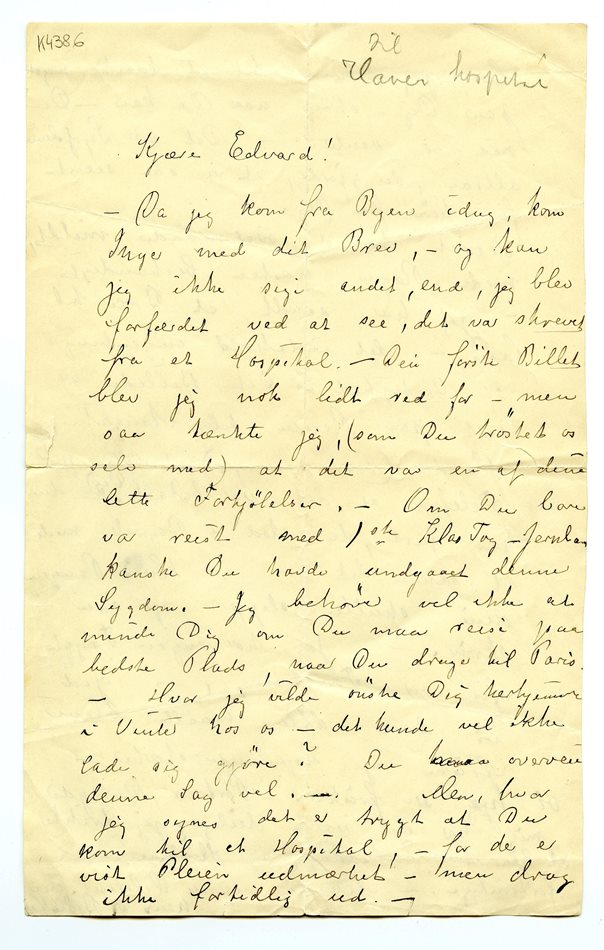 K4386
til
Haver hospital
Kjære Edvard!
– Da jeg kom fra Byen idag, kom
Inge med dit Brev, – og kan
jeg ikke sige andet, end, jeg blev
forfærdet ved at see, det var skrevet
fra et Hospital. – Dein første Billet
blev jeg nok lidt red for – men
saa tænkte jeg, (som Du trøstet os
selv med) at det var en af dine
lette Forkjølelser. – Om Du bare
var reist med 1ste Klas Tog – Jernban
kanske Du havde undgaaet denne
Sygdom. – Jeg behøver vel ikke at
minde Dig om Du maa reise paa
bedste Plads, naar Du drager til Paris.
– Hvor jeg vilde ønske Dig herhjemme
i Vinter hos os – det kunde vel ikke
lade sig gjøre? Du maa overveie
denne Sag vel. –. Men, hvor
jeg synes det er trygt at Du
kom til et Hospital! – for de er
vist Pleien udmærket – men drag
ikke fortidlig ud. –